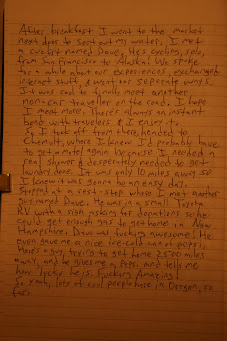 After breakfast I went to the market
next door to sort out my water. I met
a cyclist named Dave. He's cycling, solo,
from San Francisco to Alaska! We spoke
for a while about our experiences, exchanged
internet stuff, & went our seperate ways.
It was cool to finally meet another
non-car traveller on the road. I hope
I meet more. There's always an instant
bond with travelers &
So I took off from there, headed to
Chemult, where I knew I'd probably have
to get a motel again because I needed a
real shower & desperately needed to get
laundry done. It was only 10 miles away so
I knew it was gonna be an easy day.
Stopped at a rest stop where I met another
guy named Dave. He was in a small Toyota
RV with a sign asking for donations so he
could get enough gas to get home in New
Hampshire. Dave was fucking awesome! He
even gave me a nice ice-cold can of pepsi.
Here's a guy, trying to get home 2500 miles
away, and he gives me a pepsi and tells me
how lucky he is. Fucking Amazing!
So yeah, lots of cool people here in Oregon, so
far.